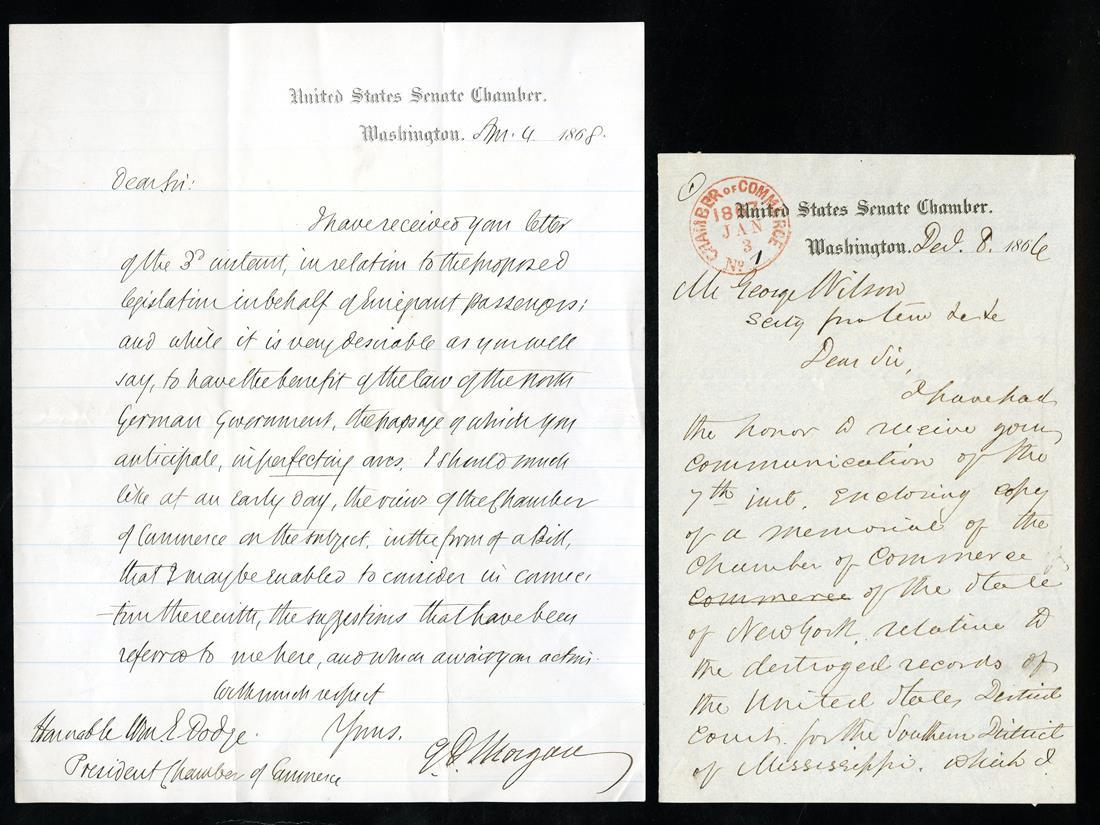 United States Senate Chamber.
Washington. Apr. 4 1868.
Dear Sir:
I have received your letter
of the 3d instant, in relation to the proposed
legislation in behalf of Emigrant passengers;
and while it is very desirable as you well
say, to have the benefit of the law of the North
German Government, the passage of which you
anticipate, in perfecting ours, I should much
like at an early day, the views of the Chamber
of Commerce on the subject, in the form of a Bill,
that I may be enabled to consider in connec-
tion therewith, the suggestions that have been
referred to me here, and which await your action.
With much respect
Yours,
E. D. Morgan
Honorable Wm. E. Dodge.
President Chamber of Commerce
1
CHAMBER OF COMMERCE
1867
JAN
3
No. 1
United States Senate Chamber.
Washington, Dec. 8. 1866
Mr George Wilson
Secty pro tem
Dear Sir,
I have had
the honor to receive your
communication of the
7th inst. Enclosing copy
of a memorial of the
Chamber of Commerce
commerce of the State
of New York, relative to
the destroyed records of
the United States District
Court for the Southern District
of Mississippi. which I